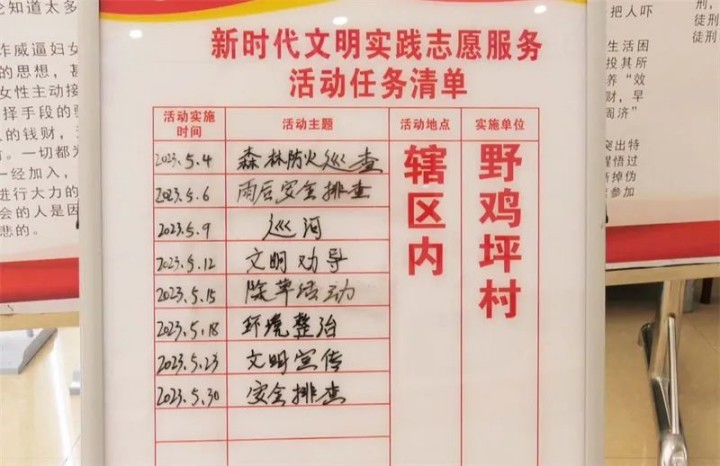 新时代文明实践志愿服务
活动任务清单
活动实施时间 活动主题 活动地点 实施单位
2023.5.4 森林防火巡查
2023.5.6 雨后安全排查
2023.5.9 巡河
2023.5.12 文明劝导
2023.5.15 除草活动
2023.5.18 环境整治
2023.5.23 文明宣传
2023.5.30 安全排查
辖区内
野鸡坪村
论知道太多
诈威逼妇女
的思想，
女性主动接
择手段的
的钱财，
。一切都
一经加入，
进行大力的
会的人是因
悲的。
把人吓
徒刑
生活困
投其所
养“效
财，早
周济”
突出特
醒悟过
新掉伪
参加
刑，
徒刑